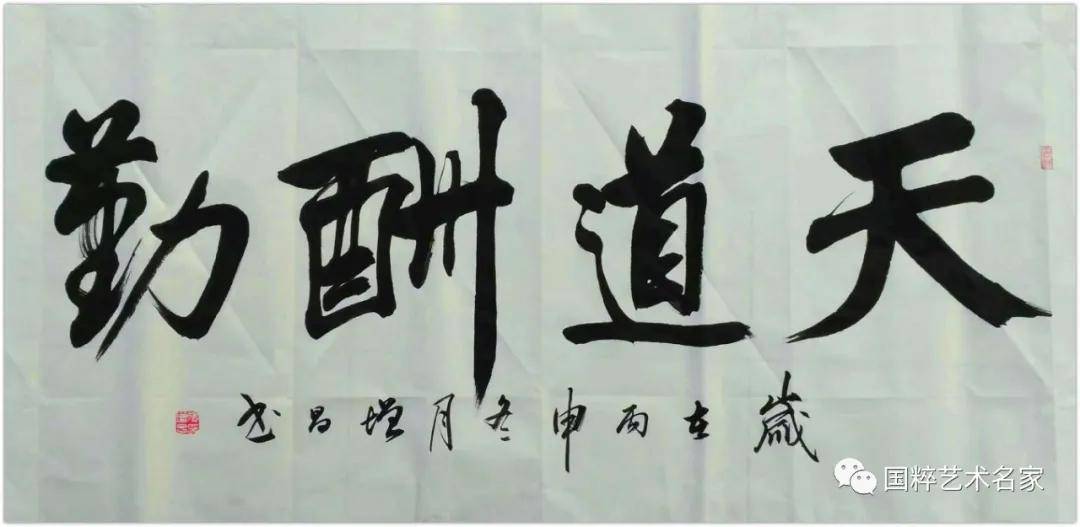 天道酬勤
歲在丙申冬月增昌书
国粹艺术名家